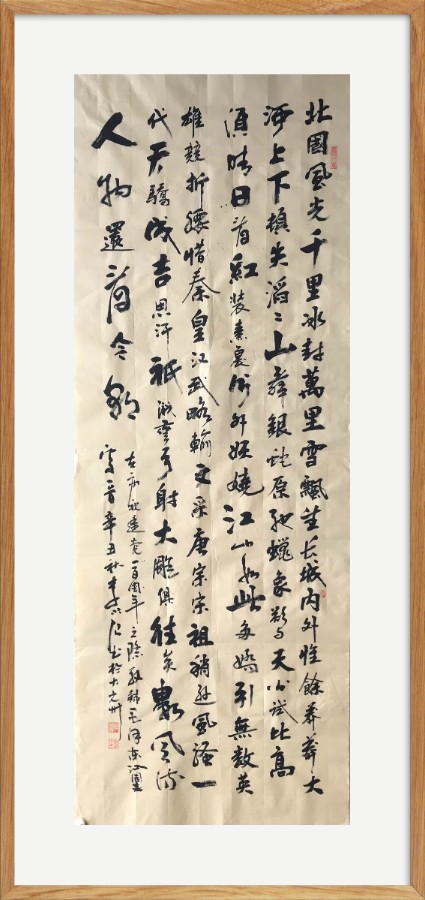 北國風光千里冰封萬里雪飄望长城内外惟餘莽莽大
河上下頓失滔〻山舞銀蛇原馳蠟象欲与天公試比高
須晴日看紅裝素裹分外妖嬈江山如此多嬌引無數英
雄競折腰惜秦皇汉武略輸文采唐宗宋祖稍遜風騷一
代天驕成吉思汗祇識彎弓射大雕俱往矣數風流
人物還看今朝
在庆祝建党一百周年之际毛泽东沁園
春雪辛丑秋书於